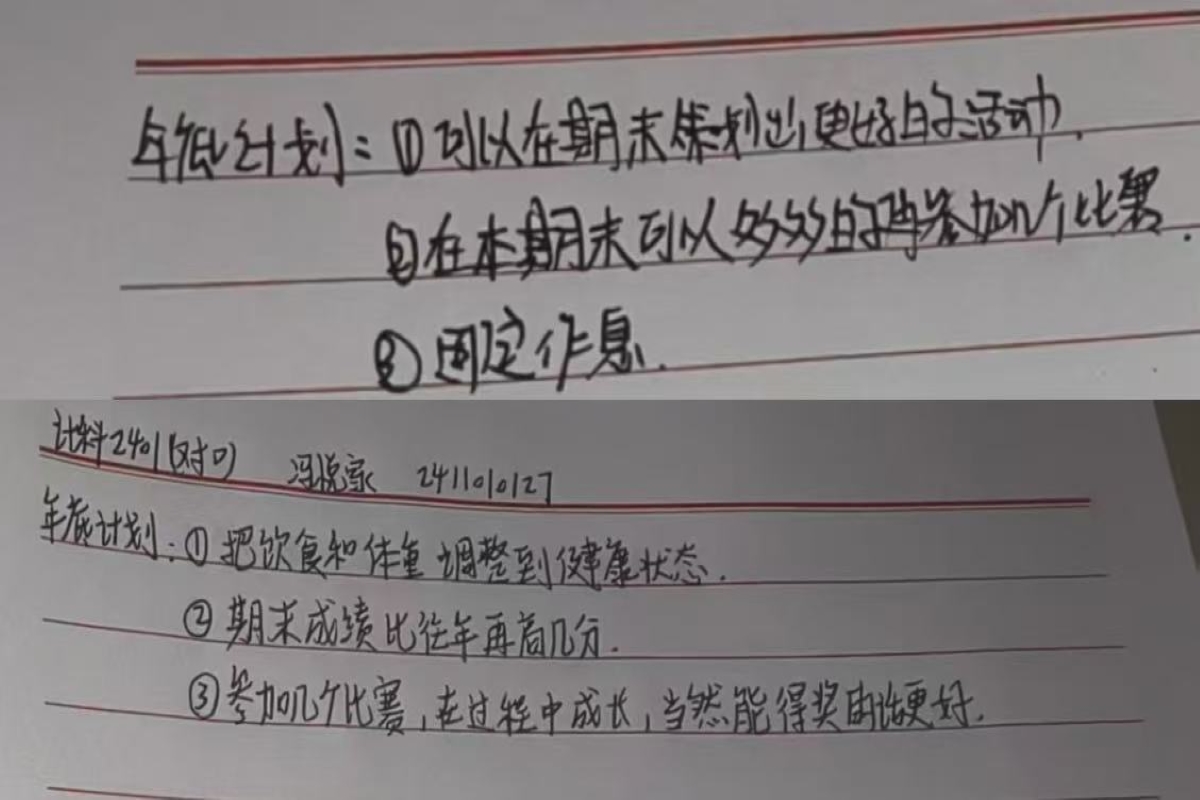 年底计划：①可以在期末策划出更好的活动.
②在本期末可以多多的再参加几个比赛.
③固定作息.
计科2401(对口) 冯悦家 2411010127
年底计划：①把饮食和体重调整到健康状态.
②期末成绩比往年再高几分.
③参加几个比赛,在过程中成长,当然能得奖的话更好.